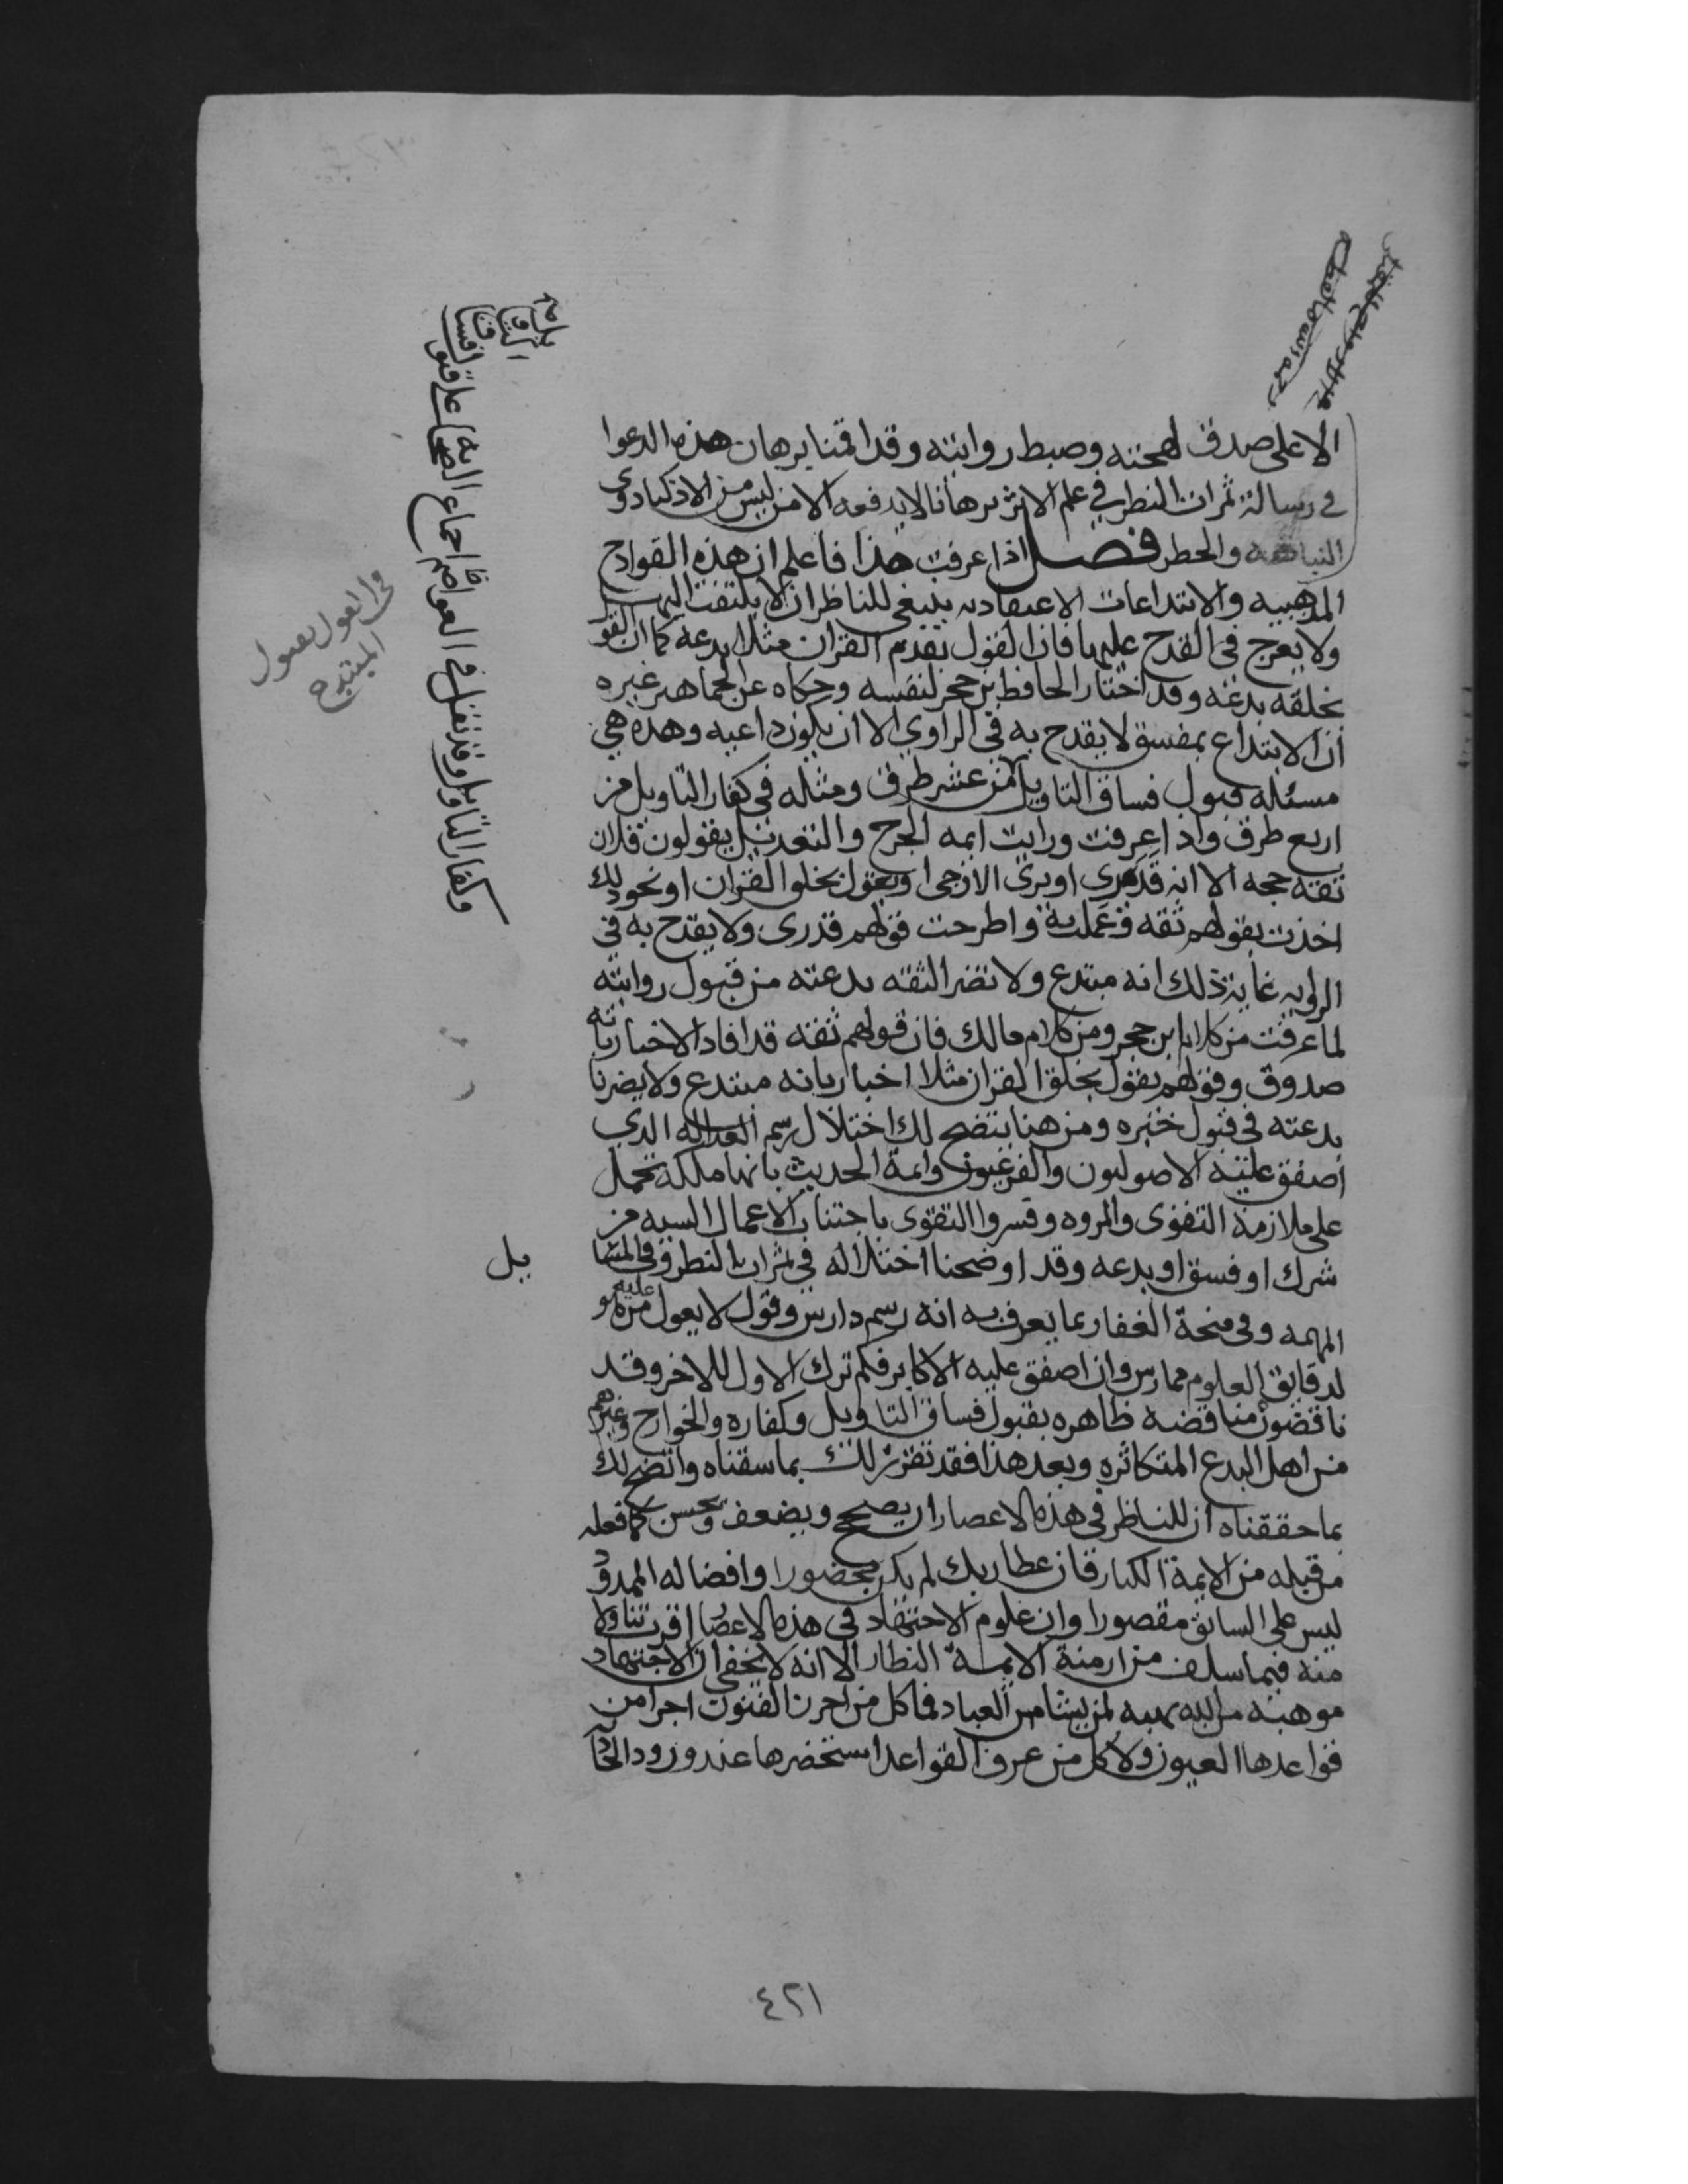 الا على صدق لهجته وضبط روايته وقد اقمنا برهان هذه الدعوا
في رسالة ثمرات النظر في علم الاثر برهانا لا يدفعه الا من ليس من الاذكيا ذوي
والحطر فصل اذا عرفت هذا فاعلم ان هذه القوادح
المذهبيه والابتداعات الاعتقاديه ينبغي للناظر ان لا يلتفت اليها
ولا يعرج في القدح عليها فان القول بقدم القران مثلا بدعه كما ان القو
بخلقه بدعه وقد اختار الحافظ بن حجر لنفسه وحكاه عن الجماهير غيره
ان الابتداع بمفسق لا يقدح به في الراوي الا ان يكون داعيه وهذه هي
مسئلة قبول فساق التاويل من عشر طرق ومثله في كفار التاويل من
اربع طرق واذا عرفت ورايت ايمه الجرح والتعديل يقولون فلان
ثقه حجه الا انه قدري او يرى الارجى او يقول بخلق القران او نحو ذلك
اخذت بقولهم ثقه وعملت به واطرحت قولهم قدري ولا يقدح به في
الروايه غاية ذلك انه مبتدع ولا تضر الثقه بدعته من قبول روايته
لما عرفت من كلام ابن حجر ومن كلام مالك فان قولهم ثقه قد افاد الاخبار بانه
صدوق وقولهم يقول بخلق القران مثلا اخبار بانه مبتدع ولا يضرنا
بدعته في قبول خبره ومن هنا يتضح لك اختلال رسم العداله الذي
اصفق عليه الاصوليون والفرعيون وايمة الحديث بانها ملكه تحمل
على ملازمة التقوى والمروه وفسروا التقوى باجتناب الاعمال السيه من
شرك او فسق او بدعه وقد اوضحنا اختلاله في ثمرات النظر وفي المسا
يل
المهمه وفي منحة الغفار بما يعرف به انه رسم دارس وقول لا يعول عليه من هو
لدقايق العلوم ممارس وان اصفق عليه الاكابر فكم ترك الاول للاخر وقد
ناقضوه مناقضه ظاهره بقبول فساق التاويل وكفاره والخوارج وغيرهم
من اهل البدع المتكاثره وبعد هذا فقد تقرر لك بما سقناه واتضح لك
بما حققناه ان للناظر في هذه الاعصار ان يصحح ويضعف ويحسن كما فعله
من قبله من الايمة الكبار فان عطا ربك لم يكن محضورا وافضاله الممدو
ليس على السابق مقصورا وان علوم الاجتهاد في هذه الاعصار اقرب تناولا
منه فيما سلف من ازمنة الايمة النظار الا انه لا يخفى ان الاجتهاد
موهبه من الله يهبه لمن يشا من العباد فما كل من احرز الفنون اجرا من
قواعدها العيون ولا كل من عرف القواعد استحضرها عند ورود
وقد نقل في العواصم اجماع الصحابه على قبول فساق
وكفار التاويل
في القول بقبول
المبتدع
٤٢١